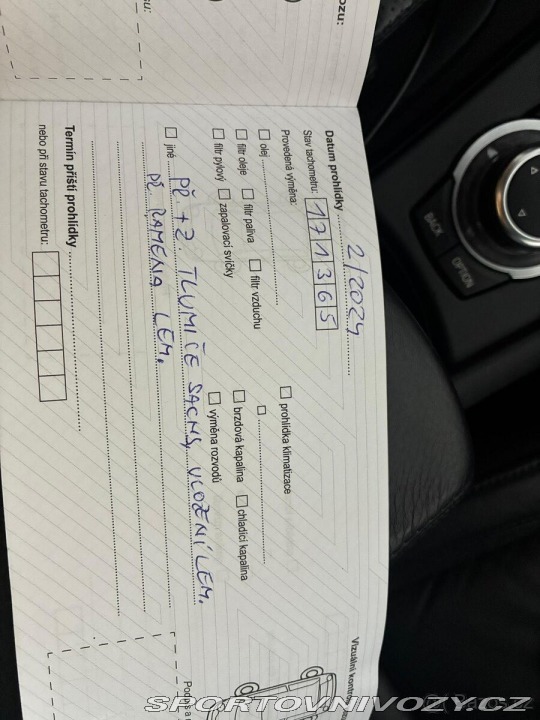 ozu:
su:
Datum prohlídky 2/2024
Stav tachometru: 171365
Provedená výměna:
olej
prohlídka klimatizace
filtr oleje filtr paliva filtr vzduchu
brzdová kapalina chladící kapalina
filtr pylový zapalovací svíčky
výměna rozvodů
jiné PŘ. + Z TLUMIČE SACHS, ULOŽENÍ LEM.
PŘ. RAMENA LEM.
Termín příští prohlídky
nebo při stavu tachometru:
Vizuální kontro
BACK
OPTION
SPORTOVNIVOZY.CZ